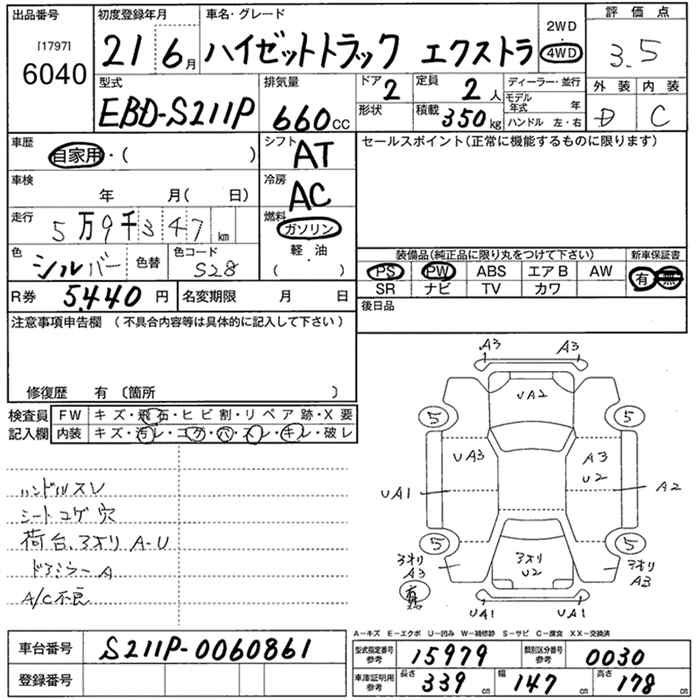 出品番号 初度登録年月 車名・グレード 2WD・4WD 評価点
[1797] 6040 21年6月 ハイゼットトラック エクストラ 3.5
型式 排気量 ドア 2 定員 2人 ディーラー・並行 外装 内装
EBD-S211P 660cc 形状 積載 350kg モデル年式 年 D C
ハンドル 左・右
車歴 自家用・( ) シフト AT セールスポイント(正常に機能するものに限ります)
車検 年 月( 日) 冷房 AC
走行 5万9千347km 燃料 ガソリン
軽・油
( )
色 シルバー 色替 色コード S28
装備品(純正品に限り丸をつけて下さい) 新車保証書
PS PW ABS エアB AW 有・無
SR ナビ TV カワ
R券 5,440円 名変期限 月 日 後日品
注意事項申告欄 (不具合内容等は具体的に記入して下さい)
修復歴 有〔箇所 〕
検査員 FW キズ・飛石・ヒビ割・リペア跡・X要
記入欄 内装 キズ・汚レ・コゲ・穴・スレ・キレ・破レ
ハンドルスレ
シートコゲ穴
荷台、3オリ A-U
ドアミラーA
A/C不良
A3 A3
UA2
5 5
UA3 A3
U2
UA1 A2
5 5
3オリ 3オリ 3オリ
A3 U2 A3
UA1 UA1
A-キズ E-エクボ U-凹み W-補修跡 S-サビ C-腐食 XX-交換済
車台番号 S211P-0060861
型式指定番号 参考 15979 類別区分番号 参考 0030
登録番号
車庫証明用 参考 長さ 339cm 幅 147cm 高さ 178cm